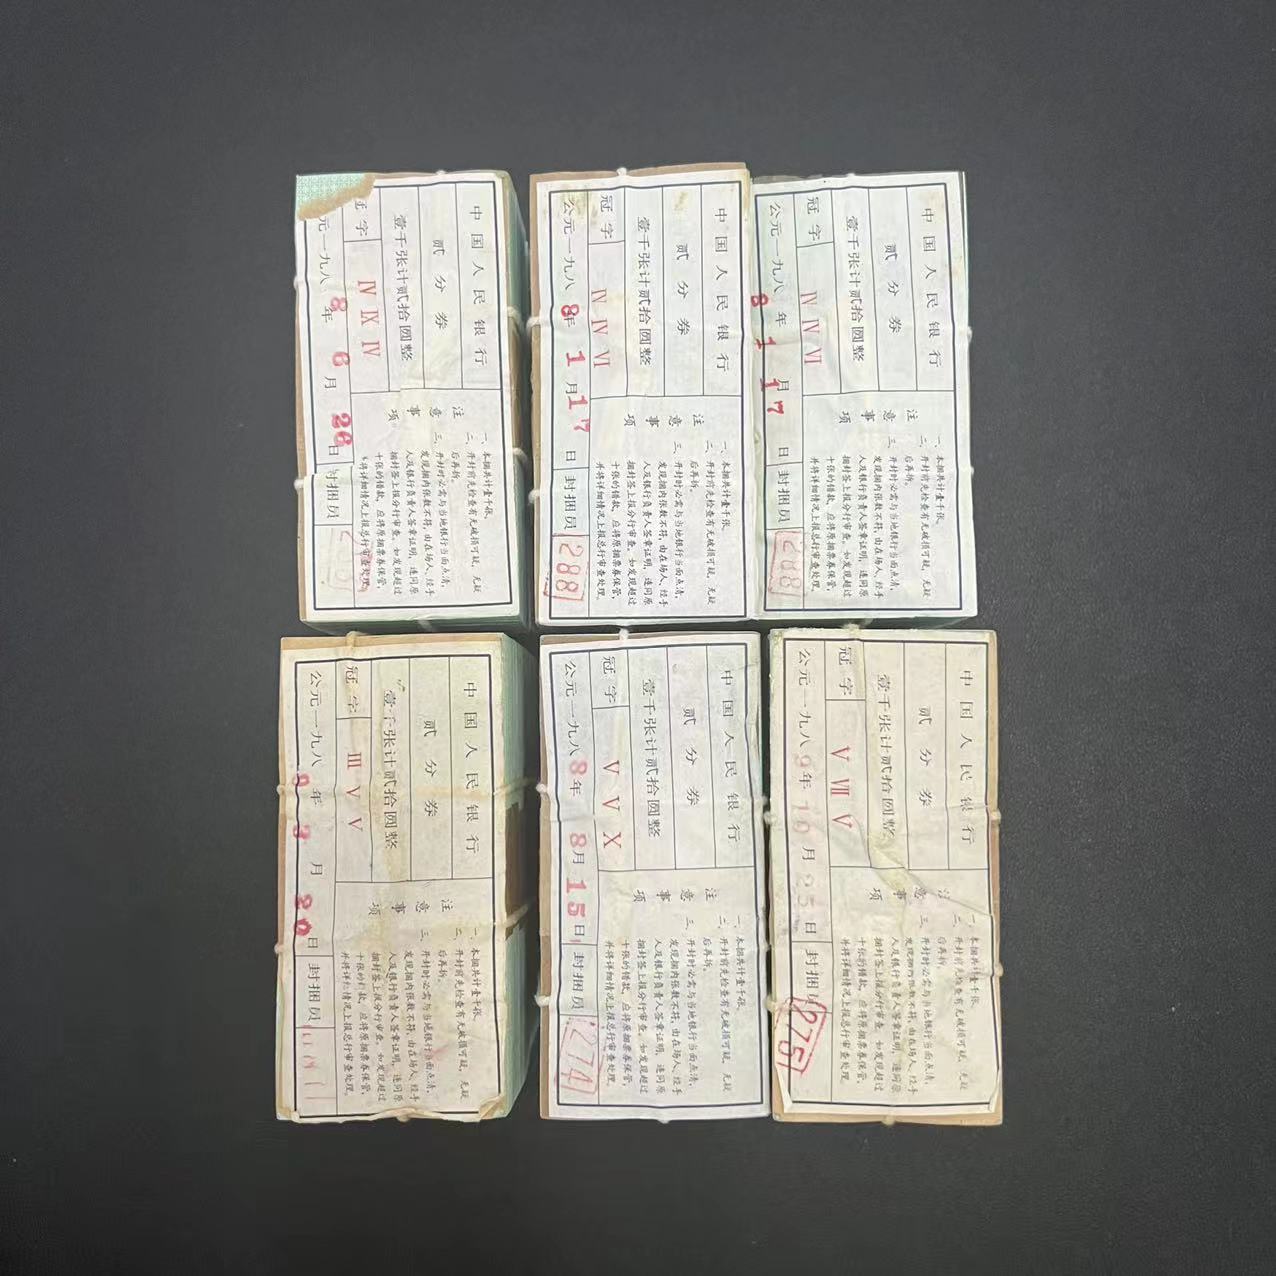 中国人民银行
贰分券
壹千张计贰拾圆整
冠字 Ⅳ Ⅸ Ⅳ
元一九八8年6月26日
注意事项
一、本捆共计壹千张。
二、开封前先检查有无破损可疑，无疑
后再拆。
三、开封时必需与当地银行当面点清，
发现捆内张数不符，由在场人、经手
人及银行负责人签章证明，连同原
捆封签上报分行审查。如发现超过
十张的错款，应将原捆票券保管，
将详细情况上报总行审查处理。
封捆员
中国人民银行
贰分券
壹千张计贰拾圆整
冠字 Ⅳ Ⅳ Ⅵ
公元一九八8年1月17日
注意事项
一、本捆共计壹千张。
二、开封前先检查有无破损可疑，无疑
后再拆。
三、开封时必需与当地银行当面点清，
发现捆内张数不符，由在场人、经手
人及银行负责人签章证明，连同原
捆封签上报分行审查。如发现超过
十张的错款，应将原捆票券保管，
并将详细情况上报总行审查处理。
封捆员 288
中国人民银行
贰分券
壹千张计贰拾圆整
冠字 Ⅳ Ⅳ Ⅵ
公元一九八8年1月17日
注意事项
一、本捆共计壹千张。
二、开封前先检查有无破损可疑，无疑
后再拆。
三、开封时必需与当地银行当面点清，
发现捆内张数不符，由在场人、经手
人及银行负责人签章证明，连同原
捆封签上报分行审查。如发现超过
十张的错款，应将原捆票券保管，
并将详细情况上报总行审查处理。
封捆员 288
中国人民银行
贰分券
壹千张计贰拾圆整
冠字 Ⅲ Ⅴ Ⅴ
公元一九八9年3月20日
注意事项
一、本捆共计壹千张。
二、开封前先检查有无破损可疑，无疑
后再拆。
三、开封时必需与当地银行当面点清，
发现捆内张数不符，由在场人、经手
人及银行负责人签章证明，连同原
捆封签上报分行审查。如发现超过
十张的错款，应将原捆票券保管，
并将详细情况上报总行审查处理。
封捆员
中国人民银行
贰分券
壹千张计贰拾圆整
冠字 Ⅴ Ⅴ Ⅹ
公元一九八8年8月15日
注意事项
一、本捆共计壹千张。
二、开封前先检查有无破损可疑，无疑
后再拆。
三、开封时必需与当地银行当面点清，
发现捆内张数不符，由在场人、经手
人及银行负责人签章证明，连同原
捆封签上报分行审查。如发现超过
十张的错款，应将原捆票券保管，
并将详细情况上报总行审查处理。
封捆员 274
中国人民银行
贰分券
壹千张计贰拾圆整
冠字 Ⅴ Ⅶ Ⅴ
公元一九八9年10月25日
注意事项
一、本捆共计壹千张。
二、开封前先检查有无破损可疑，无疑
后再拆。
三、开封时必需与当地银行当面点清，
发现捆内张数不符，由在场人、经手
人及银行负责人签章证明，连同原
捆封签上报分行审查。如发现超过
十张的错款，应将原捆票券保管，
并将详细情况上报总行审查处理。
封捆 275